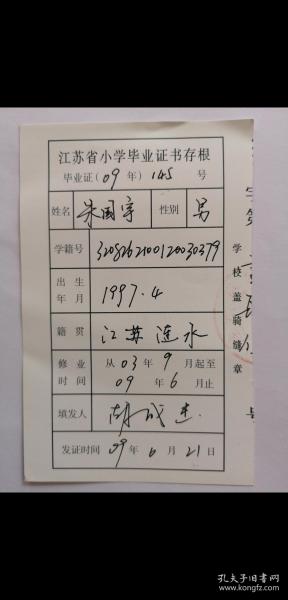 江苏省小学毕业证书存根
毕业证(09年)145号
姓名 朱国宇 性别 男
学籍号 3208262100120030379
出生年月 1997.4
籍贯 江苏涟水
修业时间 从03年9月起至09年6月止
填发人 胡成
发证时间 09年6月21日
学校盖骑缝章
孔夫子旧书网
www.kongfz.com